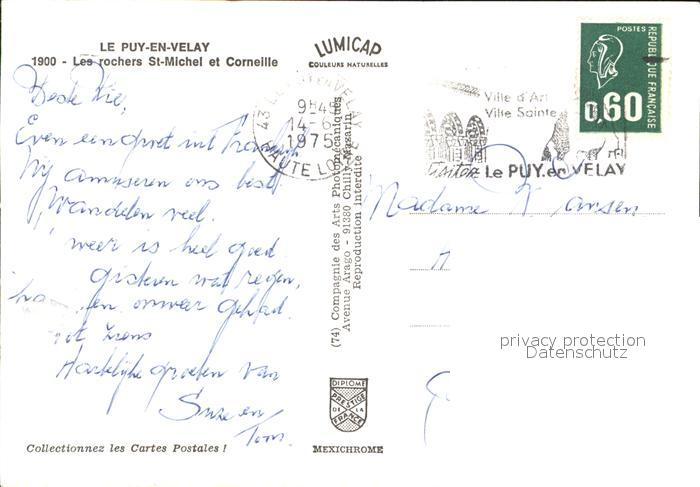 LE PUY-EN-VELAY
1900 - Les rochers St-Michel et Corneille
Beste
Even een groet uit
Wij amuseren ons best
Wandelen veel.
weer is heel goed
gisteren wat regen,
en onweer gehad.
tot ziens
Hartelijke groeten van
Suze en
Tom.
Collectionnez les Cartes Postales !
LUMICAP
COULEURS NATURELLES
43 LE PUY EN VELAY
9H45
14-6
1975
HAUTE LOIRE
(74) Compagnie des Arts Photomécaniques
Avenue Arago - 91380 Chilly-Mazarin
Reproduction interdite
DIPLOME
PRESTIGE
DE LA
FRANCE
MEXICHROME
Ville d'Art
Ville Sainte
Visitez Le PUY.en VELAY
POSTES
REPUBLIQUE FRANÇAISE
0,60
Madame Jansen
privacy protection
Datenschutz